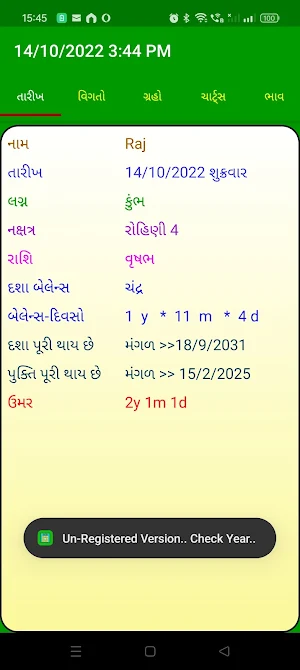 15:45
100
14/10/2022 3:44 PM
તારીખ વિગતો ગ્રહો ચાર્ટ્સ ભાવ
નામ Raj
તારીખ 14/10/2022 શુક્રવાર
લગ્ન કુંભ
નક્ષત્ર રોહિણી 4
રાશિ વૃષભ
દશા બેલેન્સ ચંદ્ર
બેલેન્સ-દિવસો 1 y * 11 m * 4 d
દશા પૂરી થાય છે મંગળ >>18/9/2031
પુક્તિ પૂરી થાય છે મંગળ >> 15/2/2025
ઉંમર 2y 1m 1d
Un-Registered Version.. Check Year..